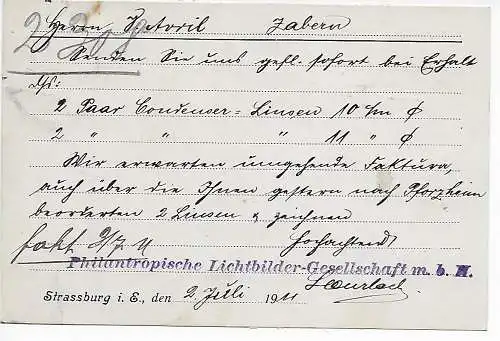 Herrn Zabern
Senden Sie uns gefl. sofort bei Erhalt
ds:
2 Paar Condenser-Linsen 10 c/m ϕ
2 " " " 11 " ϕ
Wir erwarten umgehende Faktura,
auch über die Ihnen gestern nach Pforzheim
beorderten 2 Linsen & zeichnen
fakt 3/7 11 Hochachtend
Philantropische Lichtbilder-Gesellschaft m. b. H.
Strassburg i. E., den 2 Juli 1911